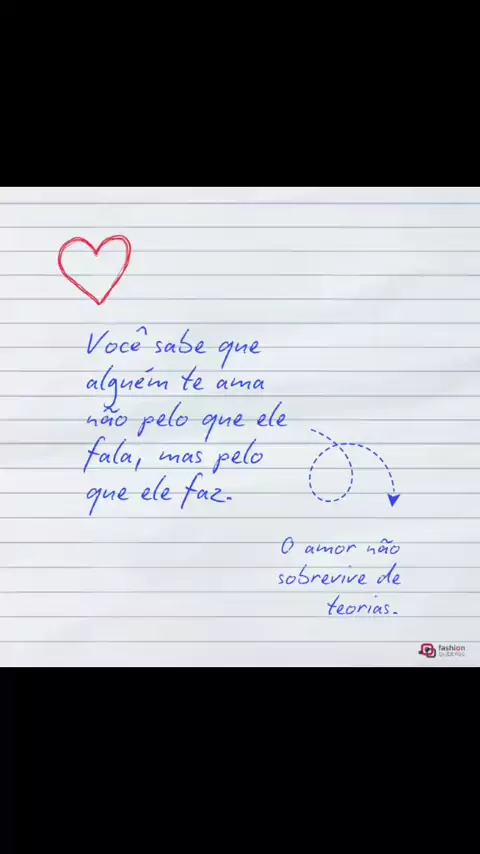 Você sabe que
alguém te ama
não pelo que ele
fala, mas pelo
que ele faz.
O amor não
sobrevive de
teorias.
fashion
bubbles